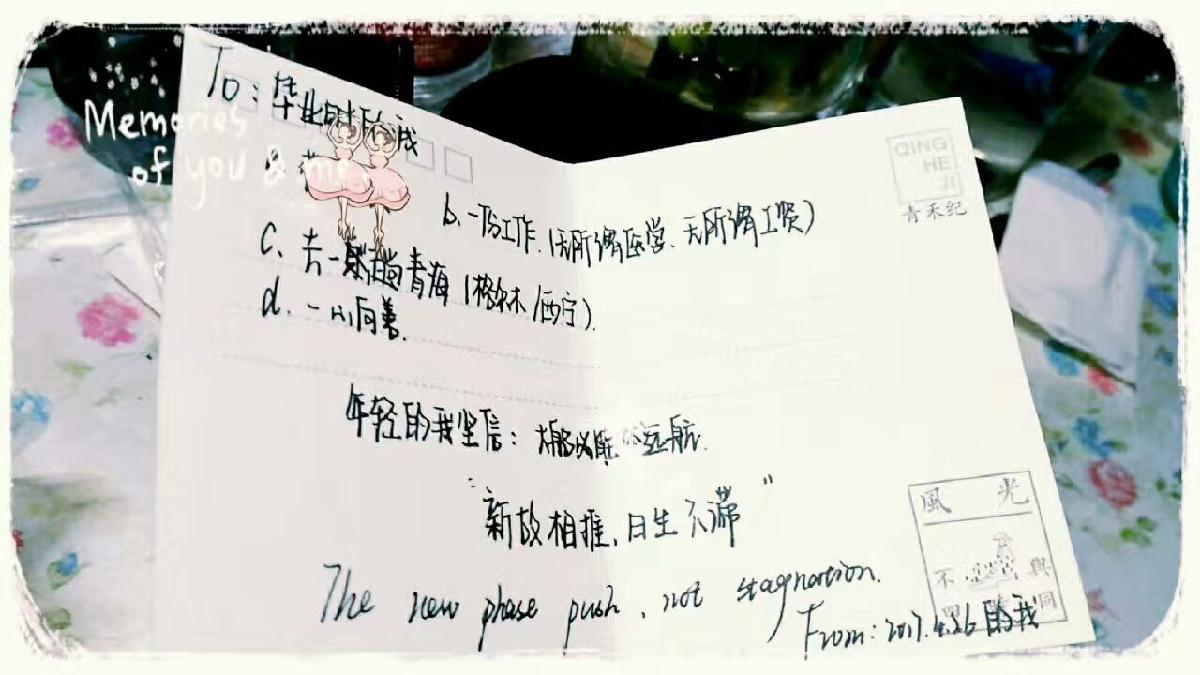 Memories
of you & me
To：毕业时的
QING
HE
JI
青禾纪
b. 一份工作.(无所谓医学、无所谓工资)
c. 去一趟青海(格尔木/西宁).
d. 一心向善.
年轻的我坚信：大船必能远航.
"新故相推,日生不滞"
The new phase push, not stagnation.
風光
不 與
四 同
From：2017.4.26 的我